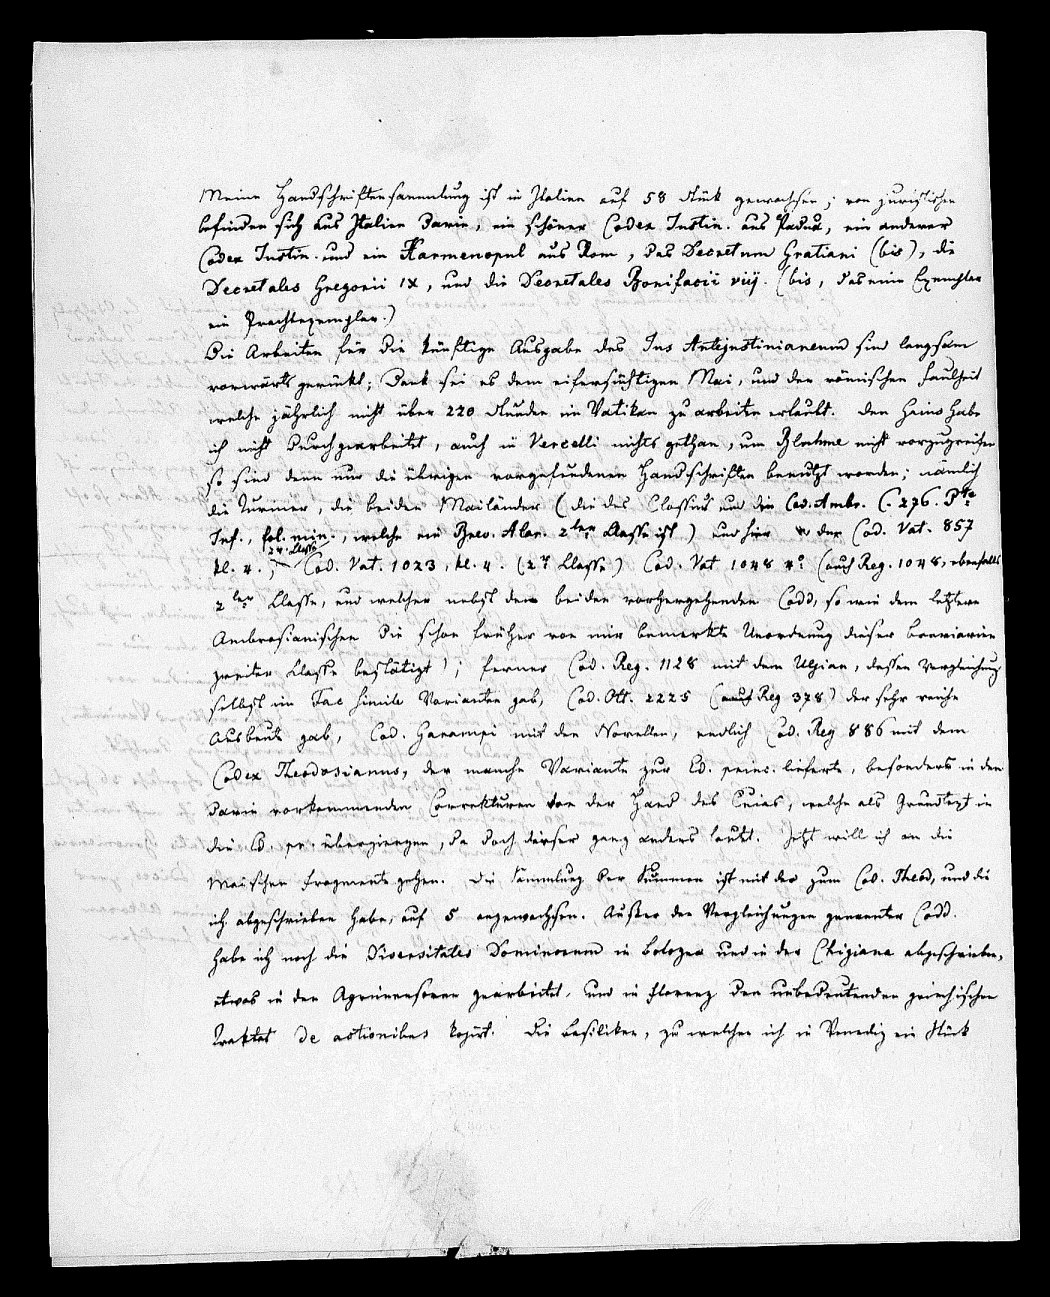 Meine Handschriftensammlung ist in Italien auf 58 Stük gewachsen; von juristischen
befinden sich aus Italien darin, ein schöner Codex Justin. aus Padua, ein anderer
Codex Justin. und ein Harmenopul aus Rom, das Decretum Gratiani (bis), die
Decretales Gregorii IX, und die Decretales Bonifacii viij. (bis, das eine Exemplar
ein Prachtexemplar.)
Die Arbeiten für die künftige Ausgabe des Jus Antejustinianeum sind langsam
vorwärts gerükt; Dank sei es dem eifersüchtigen Mai, und der römischen Faulheit
welche jährlich nicht über 220 Stunden im Vatikan zu arbeiten erlaubt. Den habe
ich nicht durchgearbeitet, auch in Vercelli nichts gethan, um Bluhme nicht vorzugreifen
so sind denn nur die übrigen vorgefundenen Handschriften benutzt worden; nämlich
die Turiner, die beiden Mailänder (die des Clossius und den Cod. Ambr. C. 276. Pte
Inf., fol. min., welche ein Brev. Alar. 2ter Classe ist) und hier der Cod. Vat. 857
kl. 4., 2r. Classe Cod. Vat. 1023, kl. 4. (2r Classe) Cod. Vat 1048 4o (auch Reg. 1048, ebenfalls
2ter Classe, und welcher nebst den beiden vorhergehenden Codd, so wie dem letztern
Ambrosianischen die schon früher von mir bemerkte Unordnung dieser Breviarien
zweiter Classe bestätigt); ferner Cod. Reg. 1128 mit dem Ulpian, dessen Vergleichung
selbst im Fac Simile Varianten gab, Cod. Ott. 2225 (auch Reg 378) der sehr reiche
Ausbeute gab, Cod. Garampi mit den Novellen, endlich Cod. Reg 886 mit dem
Codex Theodosianus, der manche Variante zur Ed. princ. lieferte, besonders in den
darin vorkommenden Correkturen von der Hand des Cuias, welche als Grundtext in
die Ed. pr. übergiengen, da doch dieser ganz anders lautet. Jetzt will ich an die
Maischen Fragmente gehen. Die Sammlung der Summen ist mit der zum Cod. Theod, und die
ich abgeschrieben habe, auf 5 angewachsen. Außer den Vergleichungen genannter Codd.
habe ich noch die Diversitates Dominorum in Bologna und in der Chigiana abgeschrieben,
etwas in den Agrimensoren gearbeitet, und in Florenz den unbedeutenden griechischen
Traktat de actionibus kopirt. Die Basiliken, zu welchen ich in Venedig ein Stück